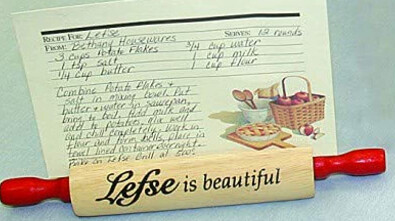 RECIPE FOR: Lefse
SERVES: 12 rounds
FROM: Bethany Housewares
3 cups Potato Flakes 3/4 cup water
1 tsp salt 1 cup milk
1/4 cup butter 1 cup flour
Combine Potato Flakes +
salt in mixing bowl. Put
butter + water in saucepan,
bring to boil. Add milk and
add to potatoes. Mix well
and chill completely. Work in
flour and form balls, place in
towel lined container overnight.
Bake on Lefse Grill at 500°.
Lefse is beautiful